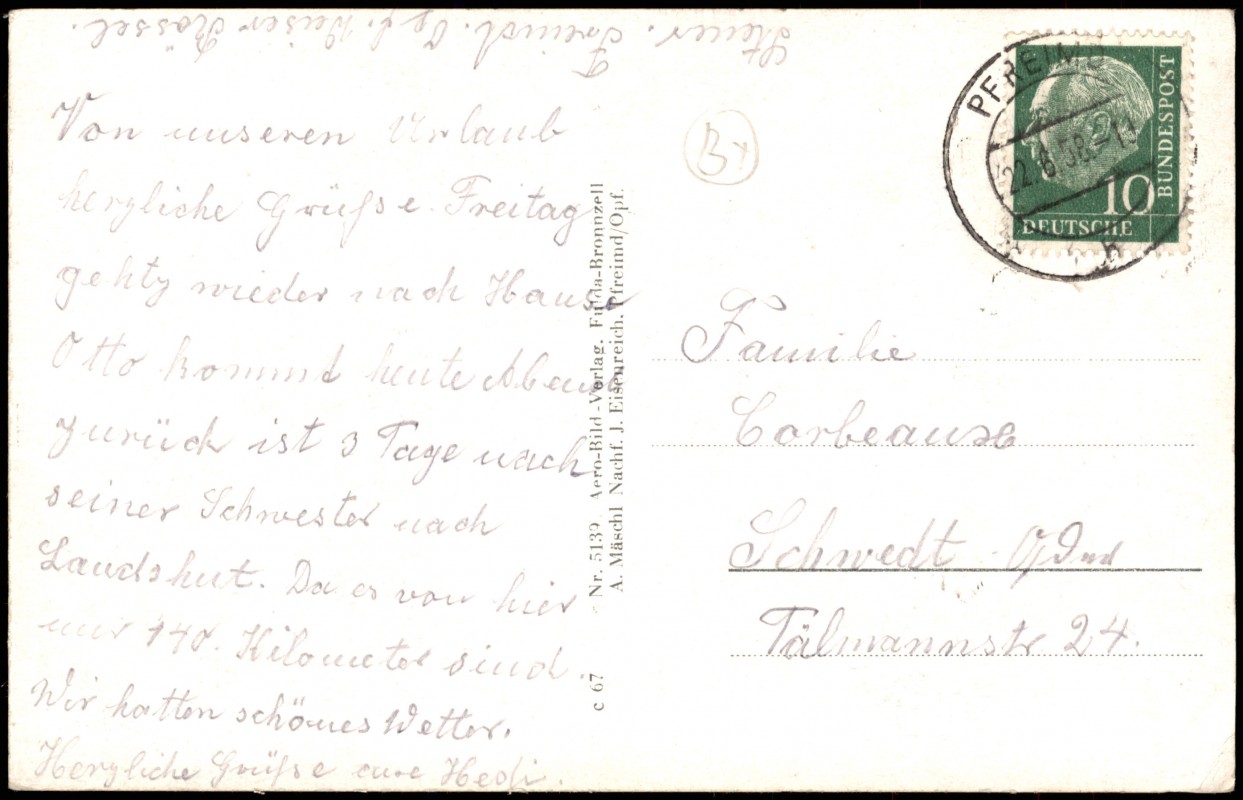 Von unseren Urlaub
herzliche Grüße. Freitag
gehty wieder nach Hause
Otto kommt heute Abend
zurück ist 3 Tage nach
seiner Schwester nach
Landshut. Da es von hier
nur 140. Kilometer sind.
Wir hatten schönes Wetter.
Herzliche Grüße eure Hedi.
B+
c 67 Nr. 5139. Aero-Bild-Verlag. Fulda-Bronnzell
A. Mäschl Nachf. J. Eisenreich. Pfreimd/Opf.
PFREIMD
22.8.58.-11
10
DEUTSCHE
BUNDESPOST
Familie
Corbeaux
Schwedt
Tälmannstr 24.